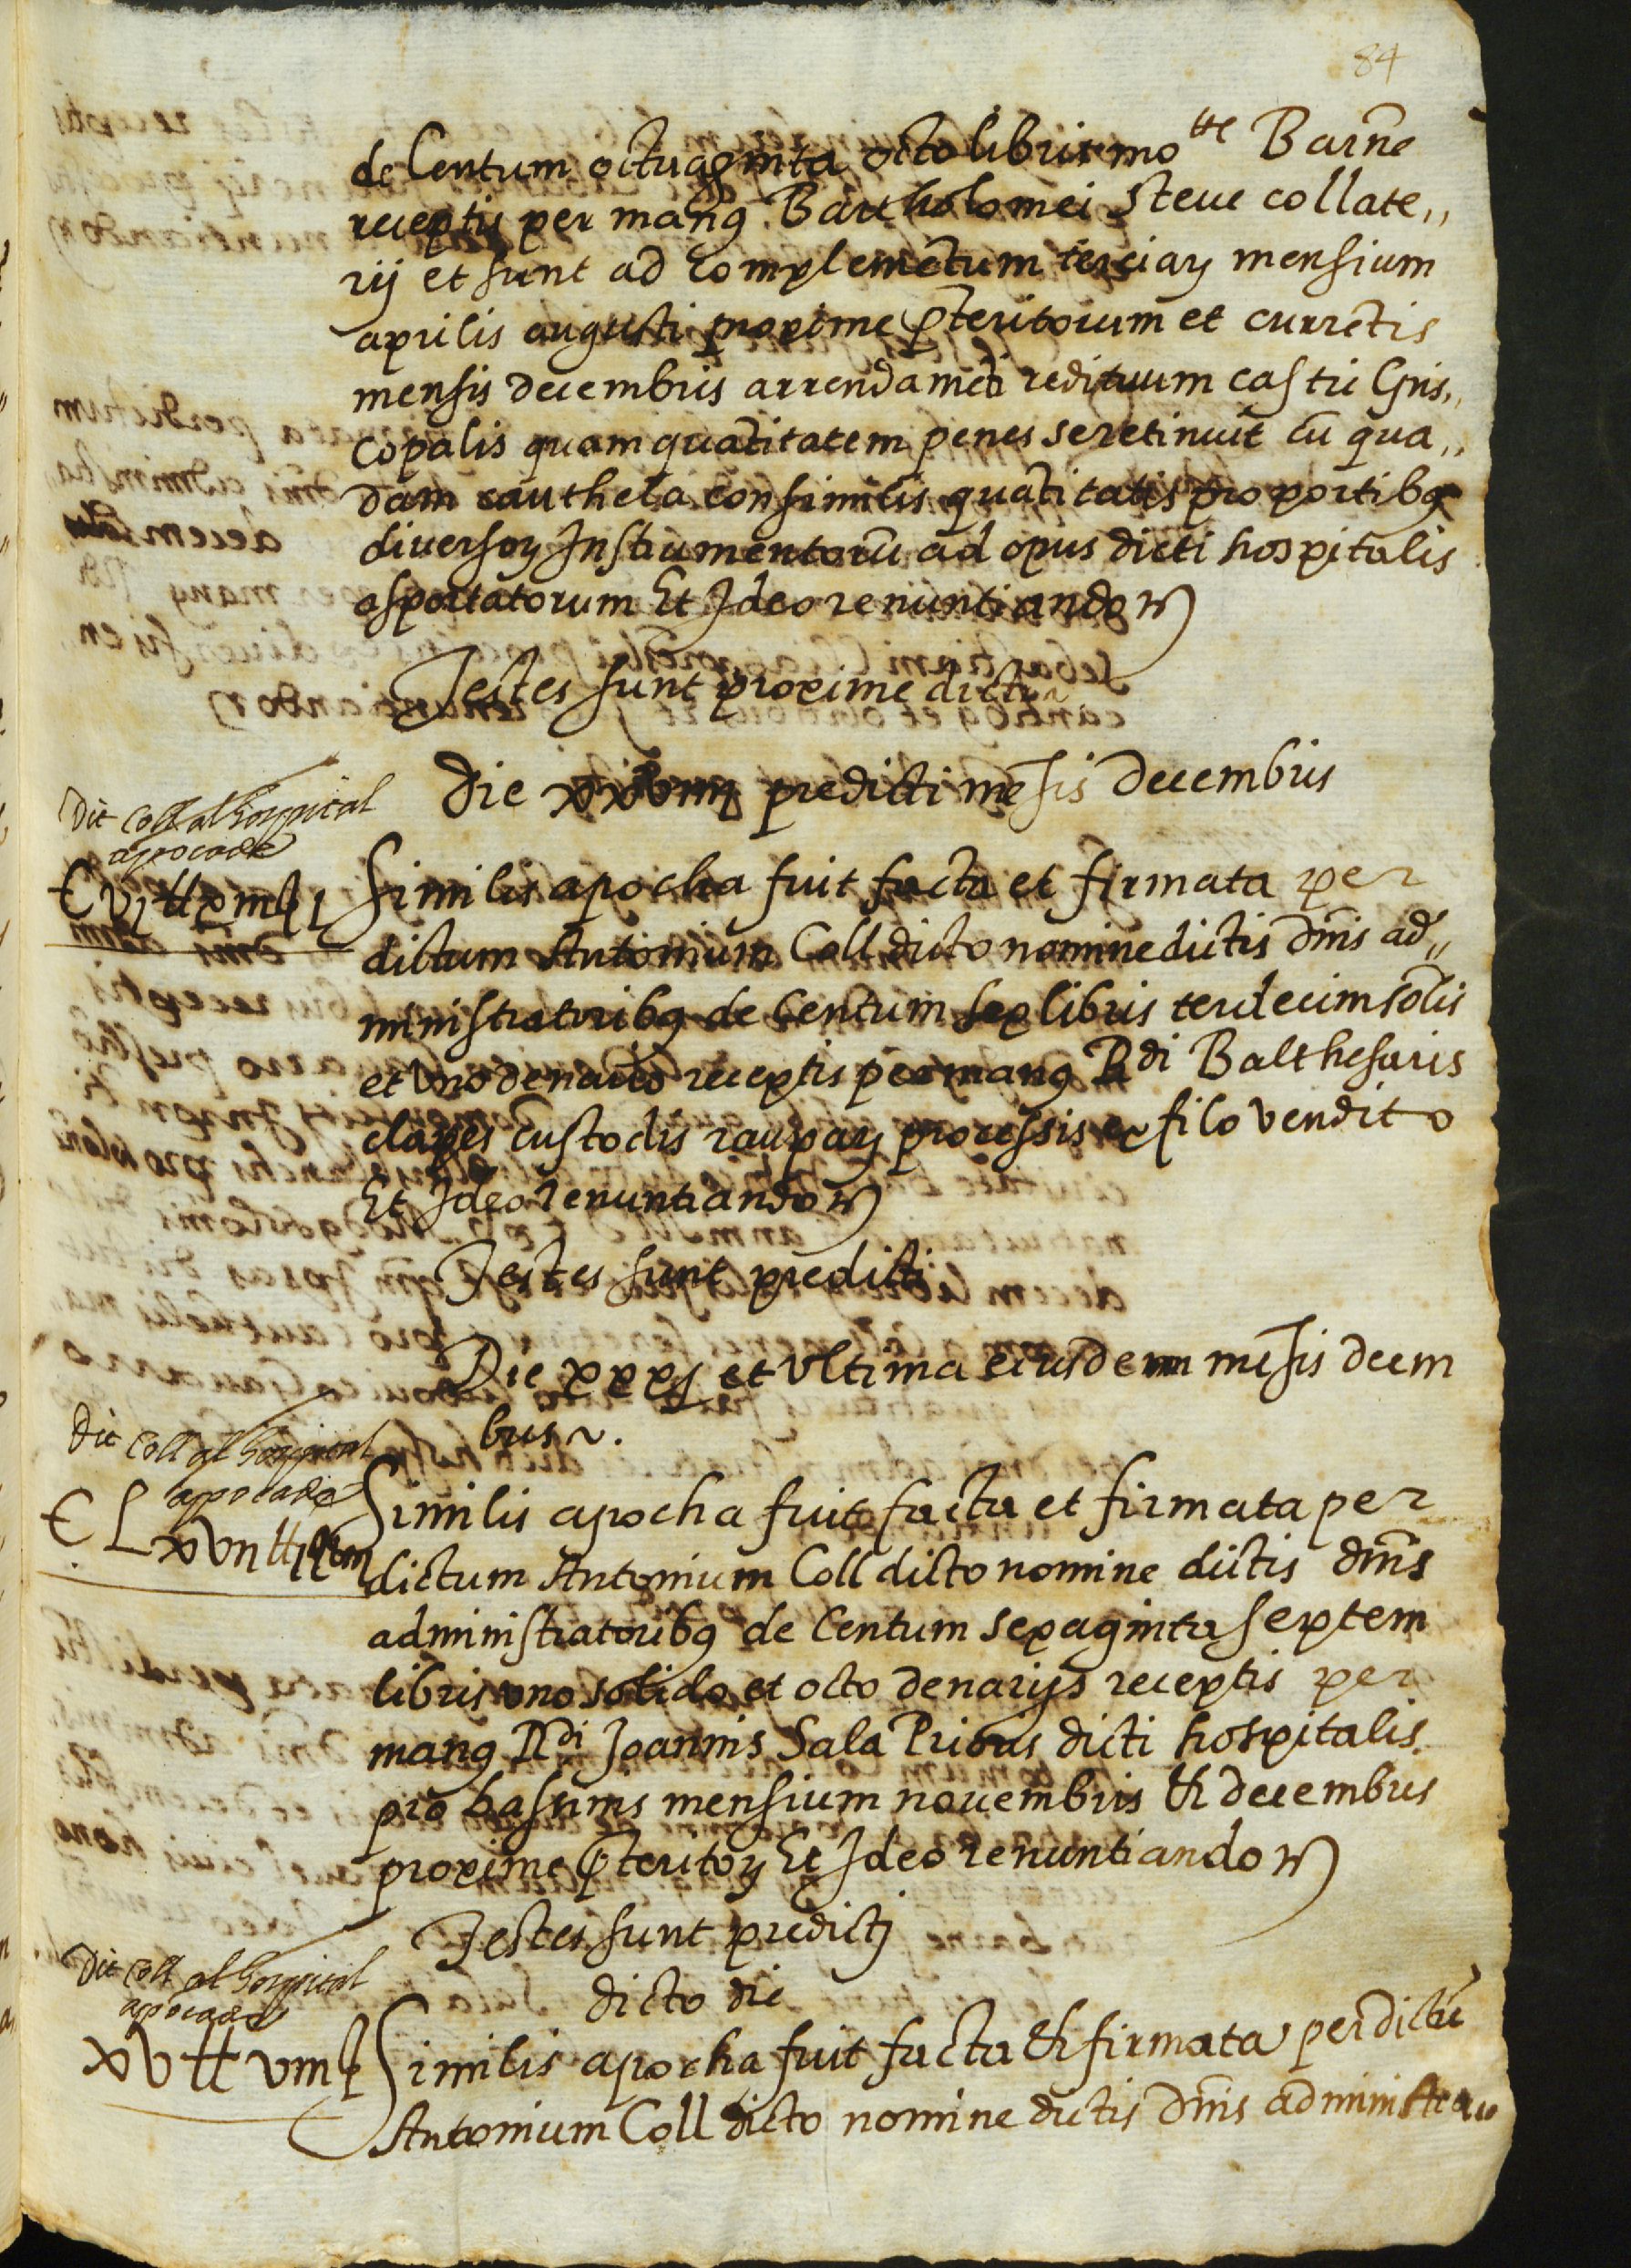 84
de Centum octuaginta octo libris mo^te Barne
receptis per manꝯ Bartholomei Steve collate,,
rij et sunt ad Complemẽtum terciaꝝ mensium
aprilis augusti proxime p̃teritorum et currẽtis
mensis decembris arrendamẽti redituum castri Epis,,
copalis quam quãtitatem penes se retinuit cũ qua,,
dam cauthela consimilis quãtitatis pro portibꝯ
diversoꝝ Instrumentorũ ad opus dicti hospitalis
asportatorum Et Ideo renuntiando
Testes sunt proxime dicti
die xxviiij predicti mẽsis decembris
Dit Coll al hospital
apoca de
C vj ₶ xiij ß j
Similis apocha fuit facta et firmata per
dictum Antonium Coll dicto nomine dictis dñis ad,,
ministratoribꝯ de Centum sex libris terdecim solis
et uno denario receptis per manꝯ R^di Balthesaris
claper custodis raupaꝝ processis ex filo vendito
Et Ideo renuntiando
Testes sunt predicti
Die xxxj et ultima eiusdem mẽsis decem
bris.
Dit Coll al hospital
apoca de
C Lxvij ₶ j ß viij
Similis apocha fuit facta et firmata per
dictum Antonium Coll dicto nomine dictis dñis
administratoribꝯ de Centum sexaginta septem
libris uno solido et octo denarijs receptis per
manꝯ R^di Joannis Sala Prioris dicti hospitalis
pro bassinis mensium novembris et decembris
proxime p̃teritoꝝ Et Ideo renuntiando
Testes sunt predictj
dicto die
Dit Coll al hospital
apoca de
xv ₶ viiij ß
Similis apocha fuit facta et firmata per dictũ
Antonium Coll dicto nomine dictis dñis administra